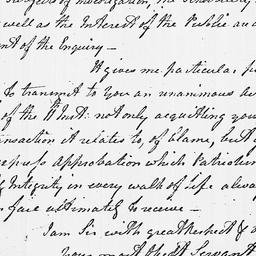 Subjects of Investigation, the
well as the Interest of the Public an
ent of the Enquiry —
It gives me particular p
to transmit to you an unanimous
of the Inst: not only acquitting you
ansaction it relates to, of blame, but
xpress Approbation which Patriotism
& Integrity in every walk of life alwa
face ultimately to receive —
I am Sir with great respect &
your most Obedt Servant